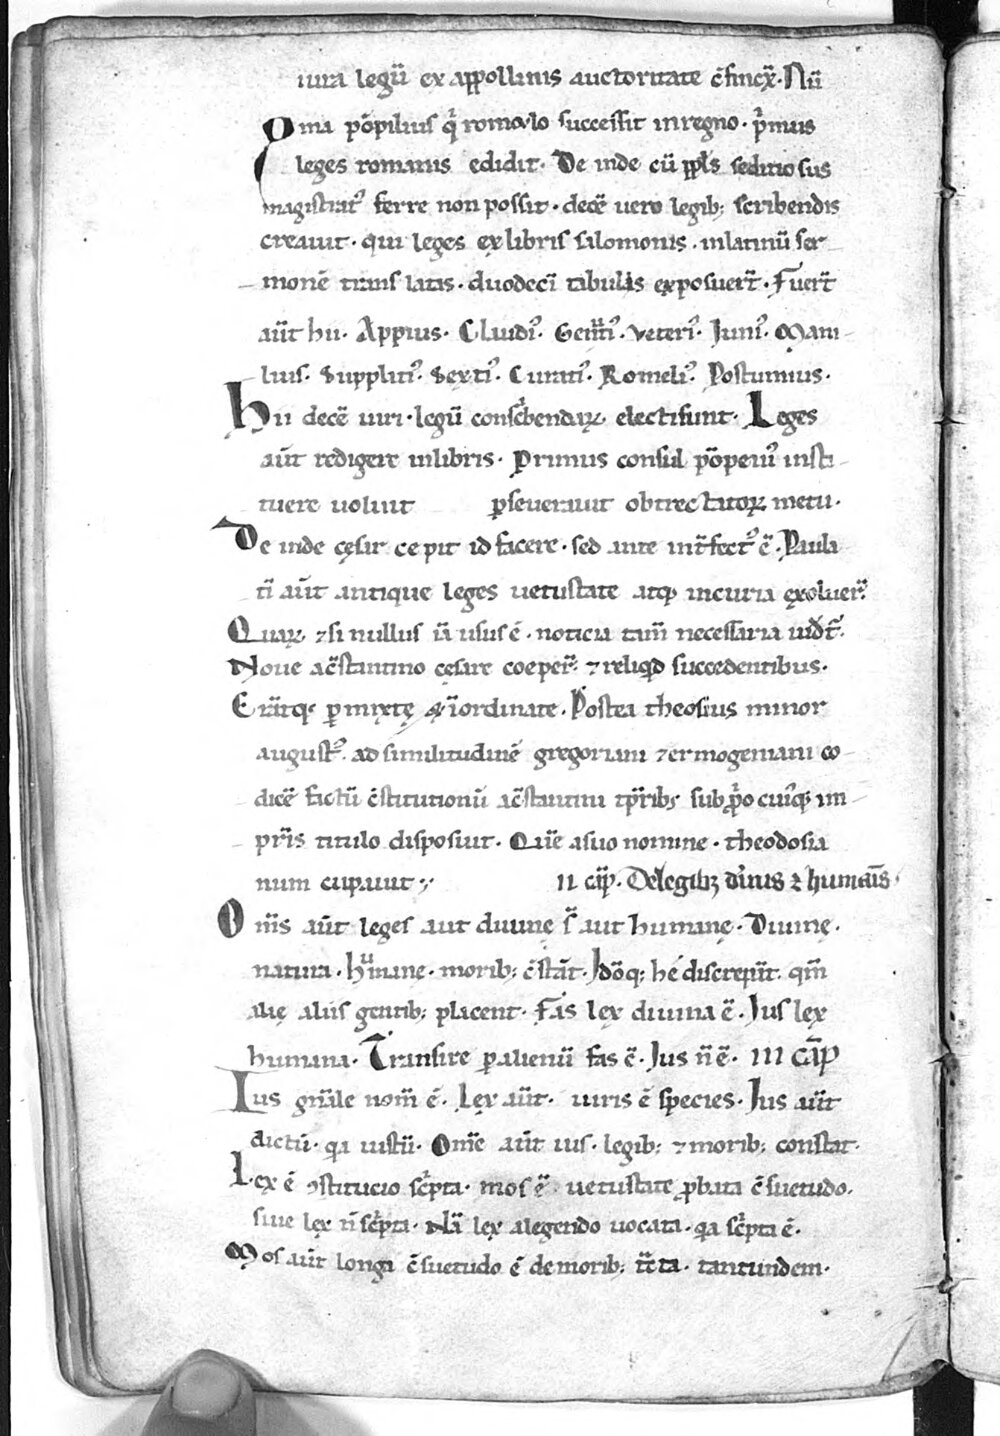 iura legū ex appollinis auctoritate c̄finx̄. Nū
Oma pōpilius q̇ romolo successit in regno. p̍mus
leges romanis edidit. De inde cū ppl̄s seditiosus
magistrat᾽ ferre non possit. decē uero legib; scribendis
creauit. qui leges ex libris silomonis. in latinū ser
monē trans latas. duodeci tabulis exposuer̄t. Fuer̄t
aūt hii. Appius. Claudi᾽. Veteri᾽. Iuni᾽. Mani
lius. Suppliti᾽. Sexti᾽. Curati᾽. Romeli᾽. Postumius.
Hii decē uiri. legū consc̍bendaꝝ electi sunt. Leges
aūt redigere in libris. Primus consul pōpeiu᾽ insti
tuere uoluit ꝑseuerauit obtrectatoꝝ metu.
De inde cęsar cepit id facere. sed ante int̄fect᾽ ē. Paula
ti aūt antique leges uetustate atq; incuria exoluer̄.
Quaꝝ ⁊ si nullus iā usus ē. noticia tam̄ necessaria uidet̄.
Noue ac̄stantino cęsare coeper̄. ⁊ reliq̍d succedentibus.
Erātq; ꝑmixtę ⁊ iordinate. Postea theosius minor
august᾽. ad similitudinē gregoriani ⁊ ermogeniani co
dicē factū c̄stitutionū ac̄stantini tp̄rib; sub p̍o cuiq; im
pr̄is titulo disposuit. Quē a suo nomine. theodosia
num cupauit. II cap̄. De legib; diuinis ⁊ humanis.
Om̄s aūt leges aut diuine s̄t aut humane. Diuine.
natura. Humane. morib; c̄stāt. Idoq; hē discrepāt. qm̄
alię aliis gentib; placent. Fas lex diuina ē. Ius lex
humana. Transire ꝑ alienū fas ē. Ius n̄ ē. III CAP̄
Ius gn̄ale nom̄ ē. Lex aūt. iuris ē species. Ius aūt
dictū. qa iustū. Om̄e aūt ius. legib; ⁊ morib; constat.
Lex ē ꝯstitucio sc̍pta. mos ē uetustate ꝓbata c̄suetudo.
siue lex n̄ sc̍pta. Nā lex a legendo uocata. qa sc̍pta ē.
Mos aūt longa c̄suetudo ē de morib; tc̄ta. tantundem.